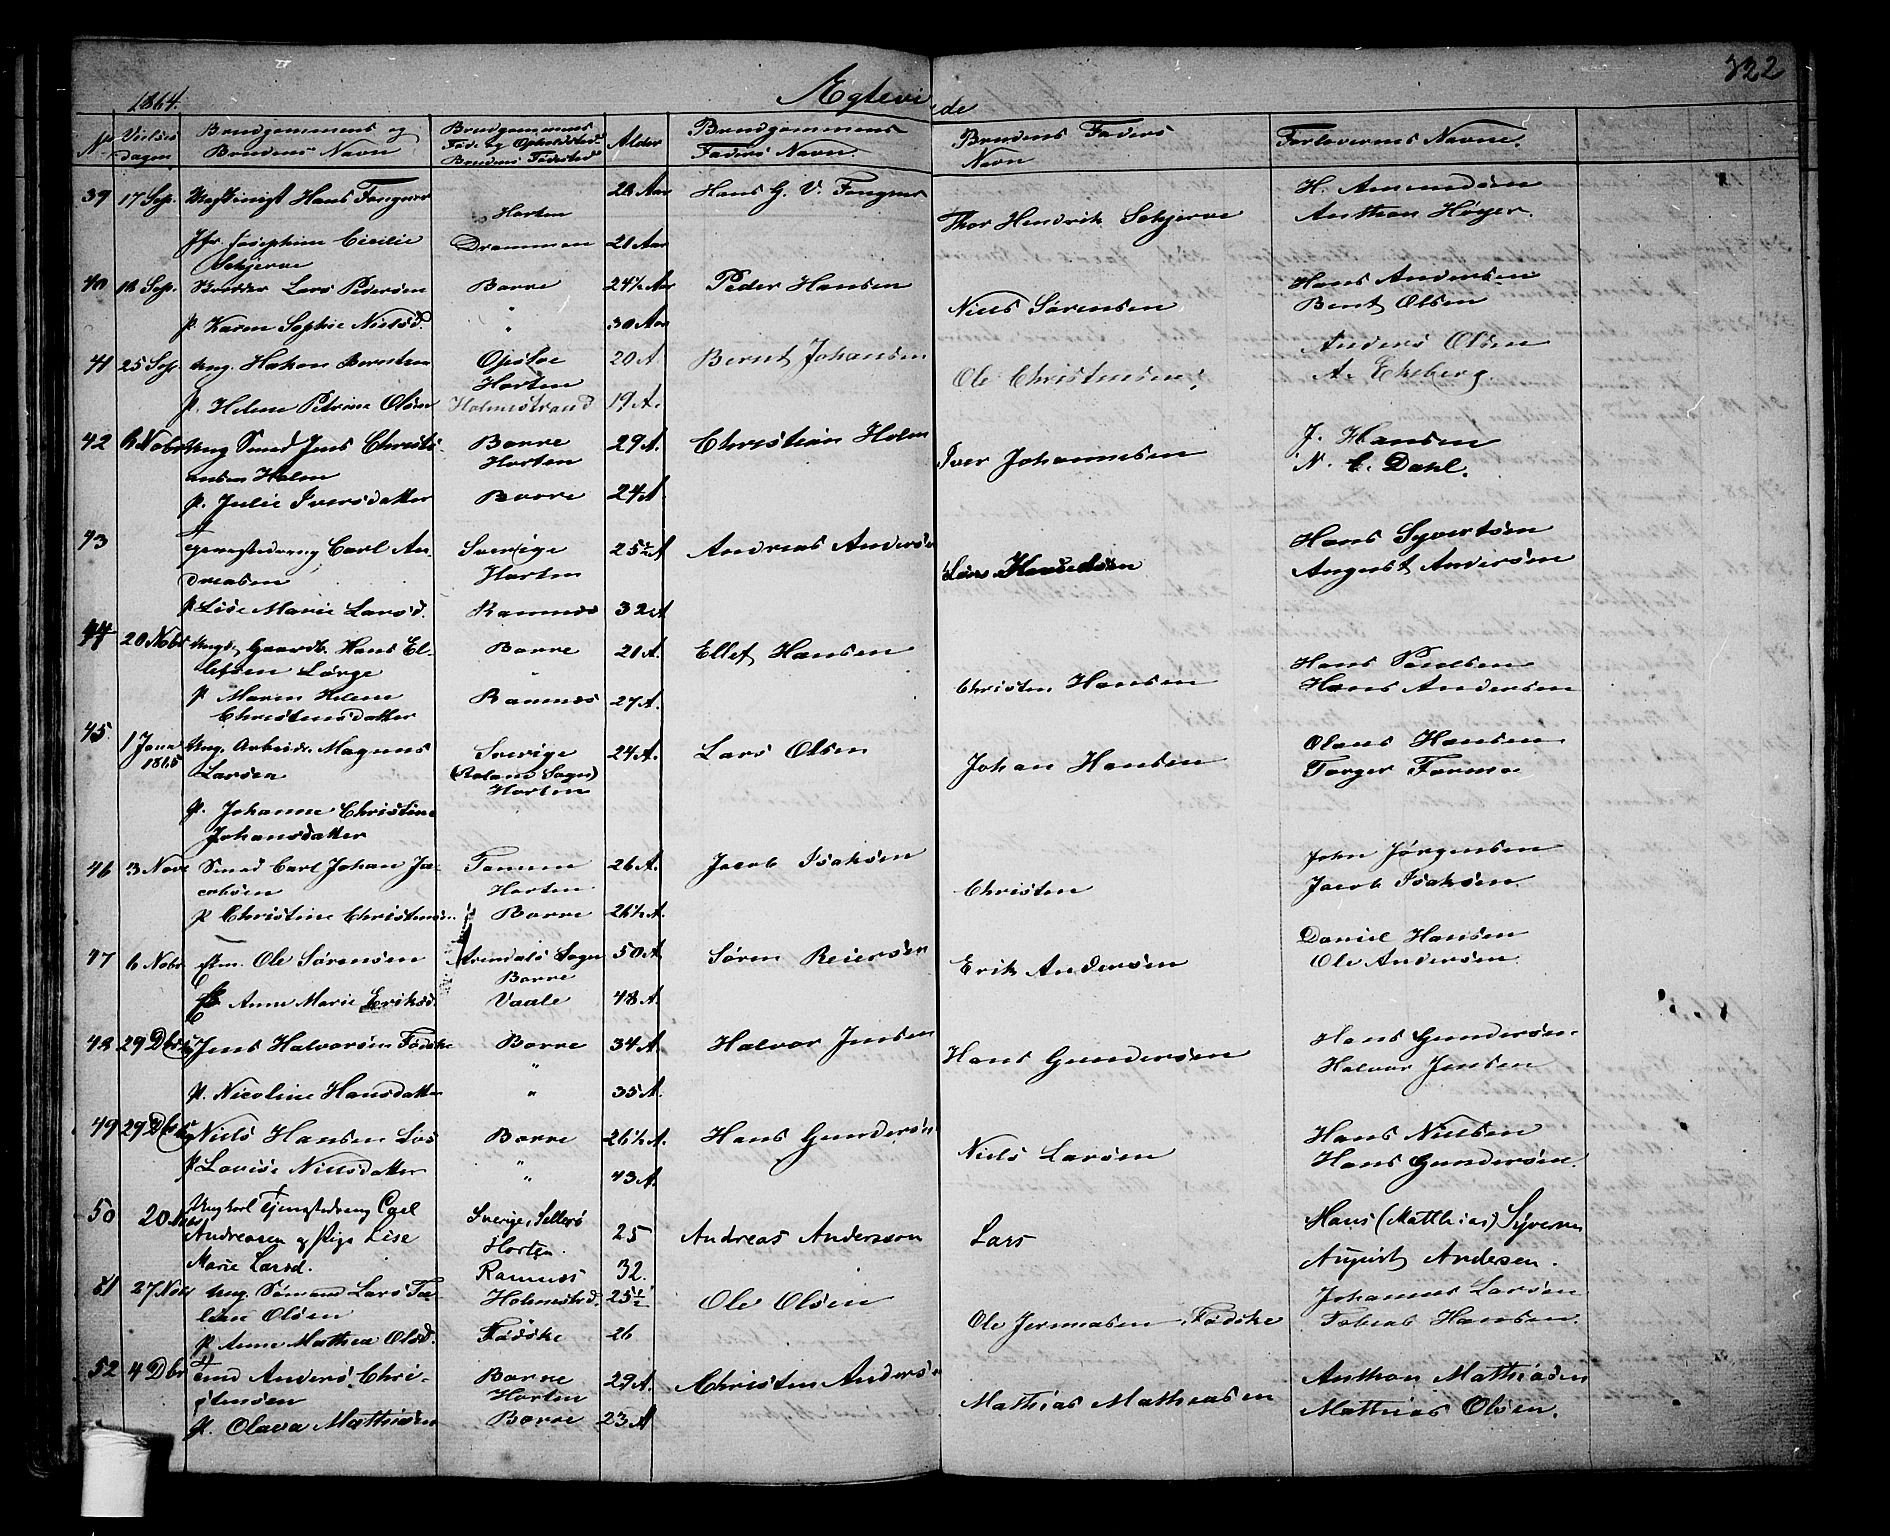 322
1864. Ægtevi de
No Vielses dagen Brudgommens og Brudens Navn Brudgommens Føde og Opholdsted Brudens Fødested Alder Brudgommens Faders Navn. Brudens Faders Navn Forlovernes Navne.
39 17 Sep. Hans Fongner 28 Aar Hans G. V. Fongner H. Amundsen
Horten Thor Hendrik Schjerve Anthon Høyer.
Jfr. Josephine Cicilie Drammen 21 Aar
Schjerve
40 18 Sep. Lars Pedersen Borre 24½ Aar Peder Hansen Niels Sørensen Hans Andersen
Bernt Olsen
p. Karen Sophie Nielsd. " 30 Aar
41 25 Sep. Ung. Hakon Berntsen Opsloe 20 A Bernt Johansen Ole Christensen Anders Olsen
Horten A. Ekeberg.
p. Helene Petrine Olsen Holmestrand 19 A.
42 6 Nobr Ung Smed Jens Christi- Borre 29 A. Christian Holm Iver Johannesen J. Hansen
ansen Holm Horten N. C. Dahl.
p. Julie Iversdatter Borre 24 A
43 Tjenestedreng Carl An- Sverige 25½ A Andreas Andersen Lars Hans Syvertsen
dreasen Horten August Andersen
p Lise Marie Larsd. Ramnes 32 A
44 20 Nobr Ungk. Gaardb. Hans El- Borre 21 A. Ellef Hansen Christen Hansen Hans Paulsen
lefsen Lørge " Hans Andersen
p Maren Helene Ramnes 27 A.
Christensdatter
45. 1 Janr 1865 Ung. Arbeidr. Magnus Sverige 24 A. Lars Olsen Johan Hansen Olaus Hansen
Larsen (Rolans Sogn) Torger
Horten
p. Johanne Christine
Johansdatter
46 3 Nov. Smed Carl Johan Ja- 26 A. Jacob Isaksen Christen John Jørgensen
cobsen Horten Jacob Isaksen.
p Christine Christensen Borre 26½ A
47 6 Nobr. Ole Sørensen Arendals Sogn 50 A Søren Reiersen Erik Andersen Daniel Hansen
Borre Ole Andersen
Anne Marie Eriksd. Vaale 48 A.
48 29 Dbr. Jens Halvorsen Fødske Borre 34 A Halvor Jensen Hans Gundersen Hans Gundersen
" Halvor Jensen
p. Nicoline Hansdatter " 35 A.
49 29 Dbr. Niels Hansen Borre 26½ A. Hans Gundersen Niels Larsen Hans Nielsen
p. Lovise Nielsdatter " 43 A Hans Gundersen.
50 20 Nobr Ungkarl Tjenestedreng Carl Sverige, 25 Andreas Anderson Lars Hans (Matthias)
Andreasen og Pige Lise Horten August Andersen.
Marie Larsd. Ramnes 32.
51 27 Nobr Ung. Sømand Lars Ju- Holmestrd. 25½ Ole Olsen Ole Jermasen Fødske Johannes Larsen
lian Olsen Tobias Hansen.
p Anne Mathea Olsd. Fødske 26
52 4 Dbr Anders Chri- Borre 29 A. Christen Andersen Mathias Mathiasen Anthon Mathiasen
stensen Horten Mathias Olsen.
p. Olava Mathiasen Borre 23 A